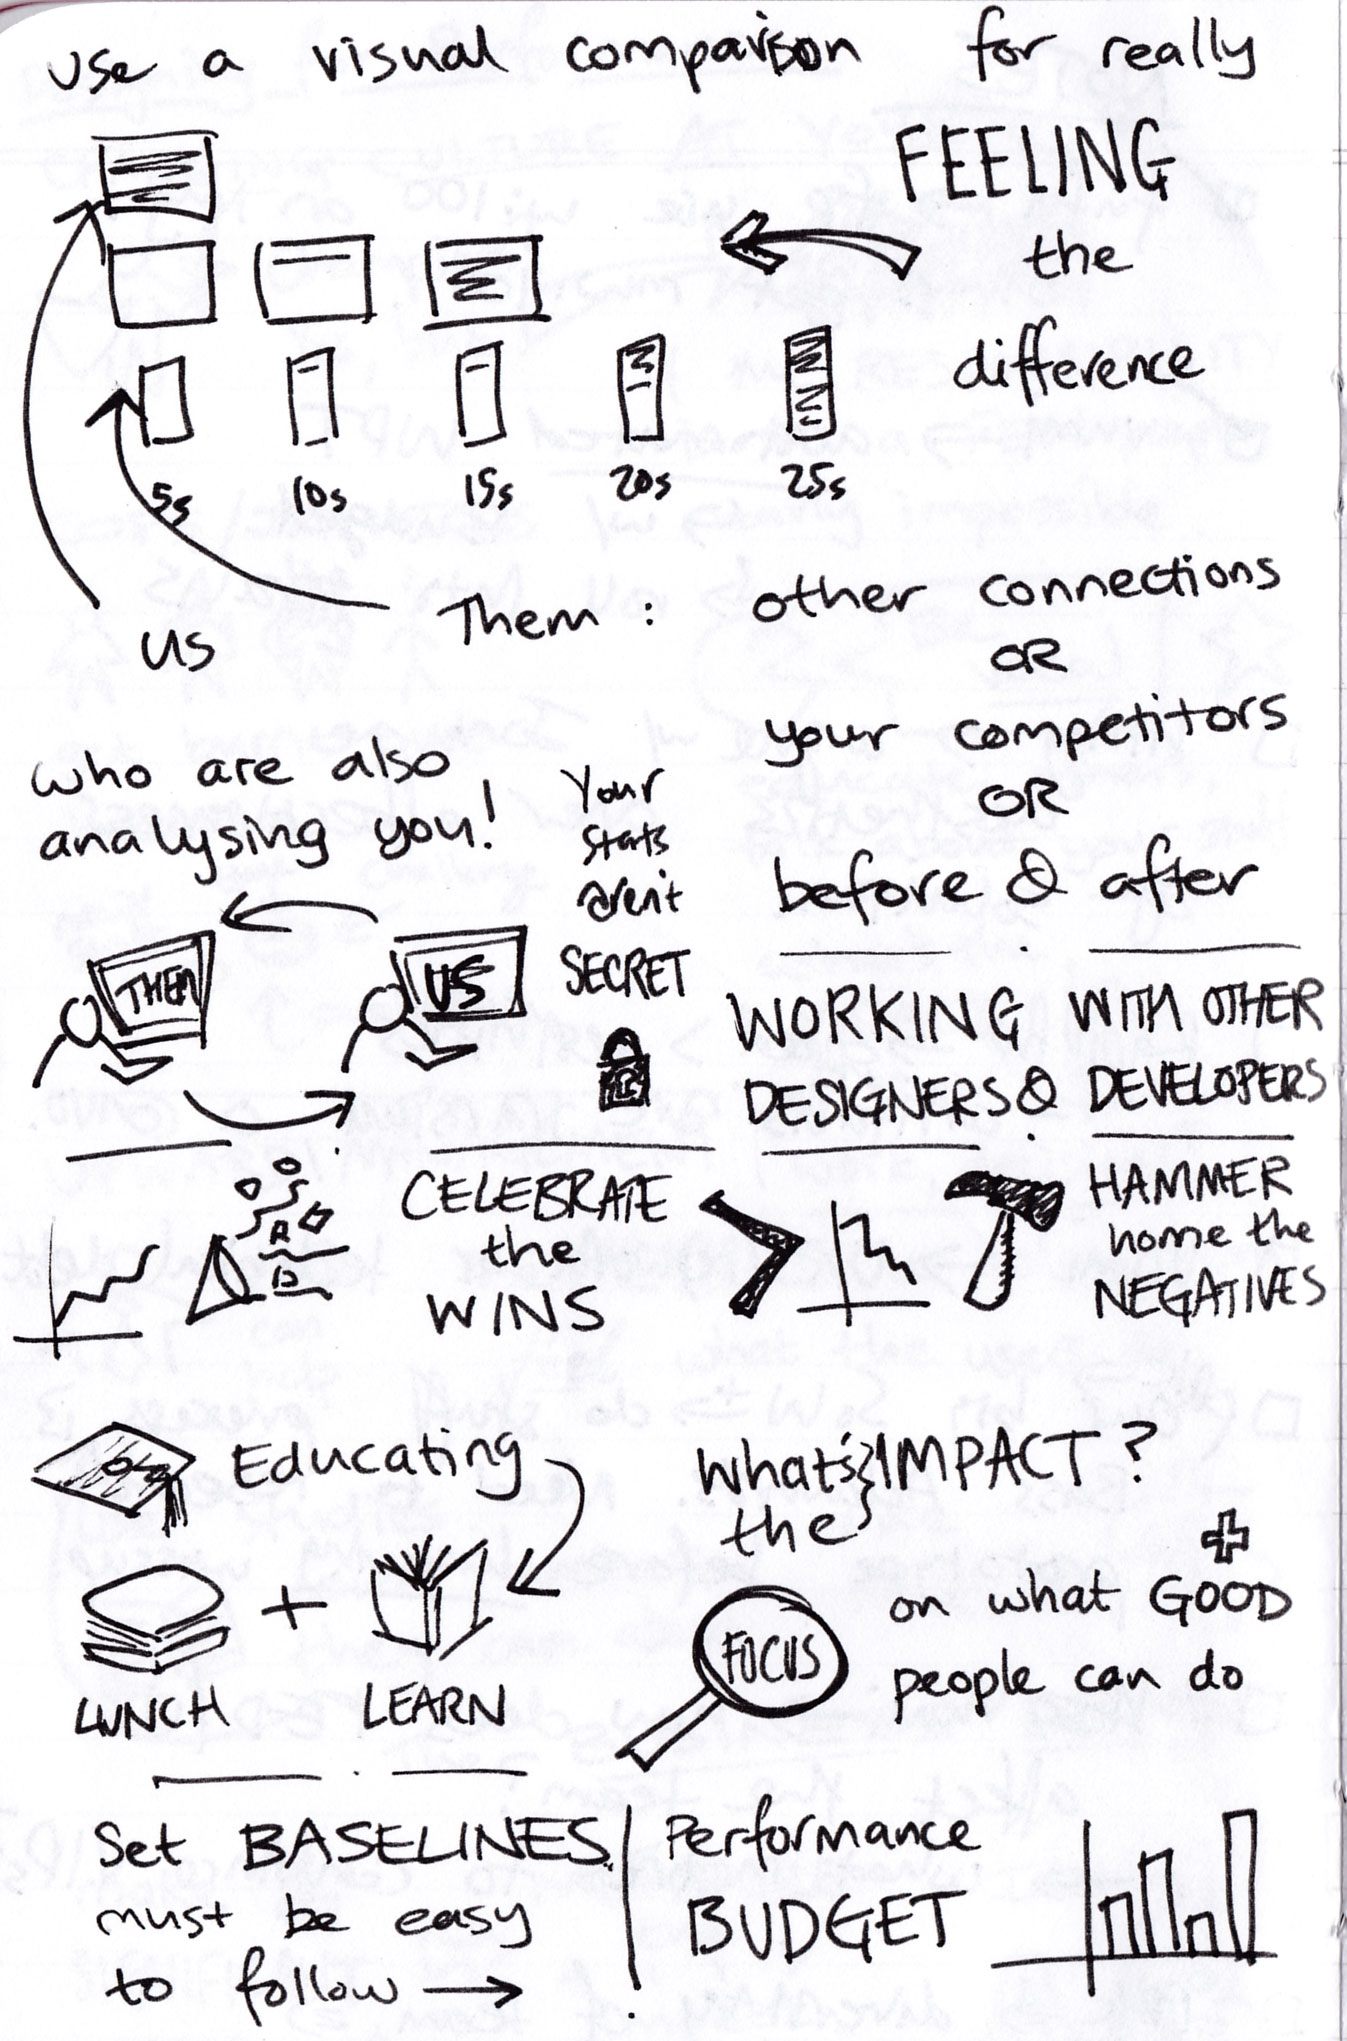 use a visual comparison for really
FEELING
the
difference
5s 10s 15s 20s 25s
US
Them : other connections
OR
your competitors
OR
before & after
who are also
analysing you!
Your
stats
aren't
SECRET
THEM
US
WORKING WITH OTHER
DESIGNERS & DEVELOPERS
CELEBRATE
the
WINS
HAMMER
home the
NEGATIVES
Educating
LUNCH + LEARN
What's the IMPACT?
FOCUS
on what GOOD
people can do
Set BASELINES
must be easy
to follow →
Performance
BUDGET